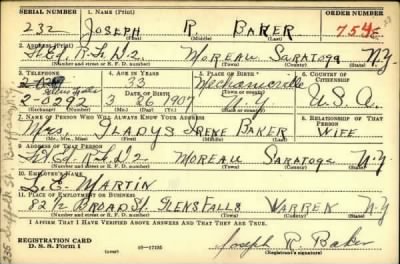 SERIAL NUMBER 1. NAME (Print) ORDER NUMBER
232 JOSEPH R. BAKER 754E
(First) (Middle) (Last)
2. ADDRESS (Print)
R.F.D.2 MOREAU SARATOGA N.Y.
(Number and street or R. F. D. number) (Town) (County) (State)
3. TELEPHONE 4. AGE IN YEARS 5. PLACE OF BIRTH 6. COUNTRY OF CITIZENSHIP
33 Mechanicville
DATE OF BIRTH (Town or county)
2-0292 3 26 1907 N.Y. U.S.A.
(Exchange) (Number) (Mo.) (Day) (Yr.) (State or country)
7. NAME OF PERSON WHO WILL ALWAYS KNOW YOUR ADDRESS 8. RELATIONSHIP OF THAT PERSON
Mrs. GLADYS IRENE BAKER WIFE
(Mr., Mrs., Miss) (First) (Middle) (Last)
9. ADDRESS OF THAT PERSON
R.F.D.2 MOREAU SARATOGA N.Y
(Number and street or R. F. D. number) (Town) (County) (State)
10. EMPLOYER'S NAME
L.E. MARTIN
11. PLACE OF EMPLOYMENT OR BUSINESS
82 1/2 BROAD St. GLENS FALLS WARREN N.Y
(Number and street or R. F. D. number) (Town) (County) (State)
I AFFIRM THAT I HAVE VERIFIED ABOVE ANSWERS AND THAT THEY ARE TRUE.
REGISTRATION CARD
D. S. S. Form 1 16—17135 Joseph R. Baker
(Registrant's signature)
235 Suffolk St Buffalo N.Y.